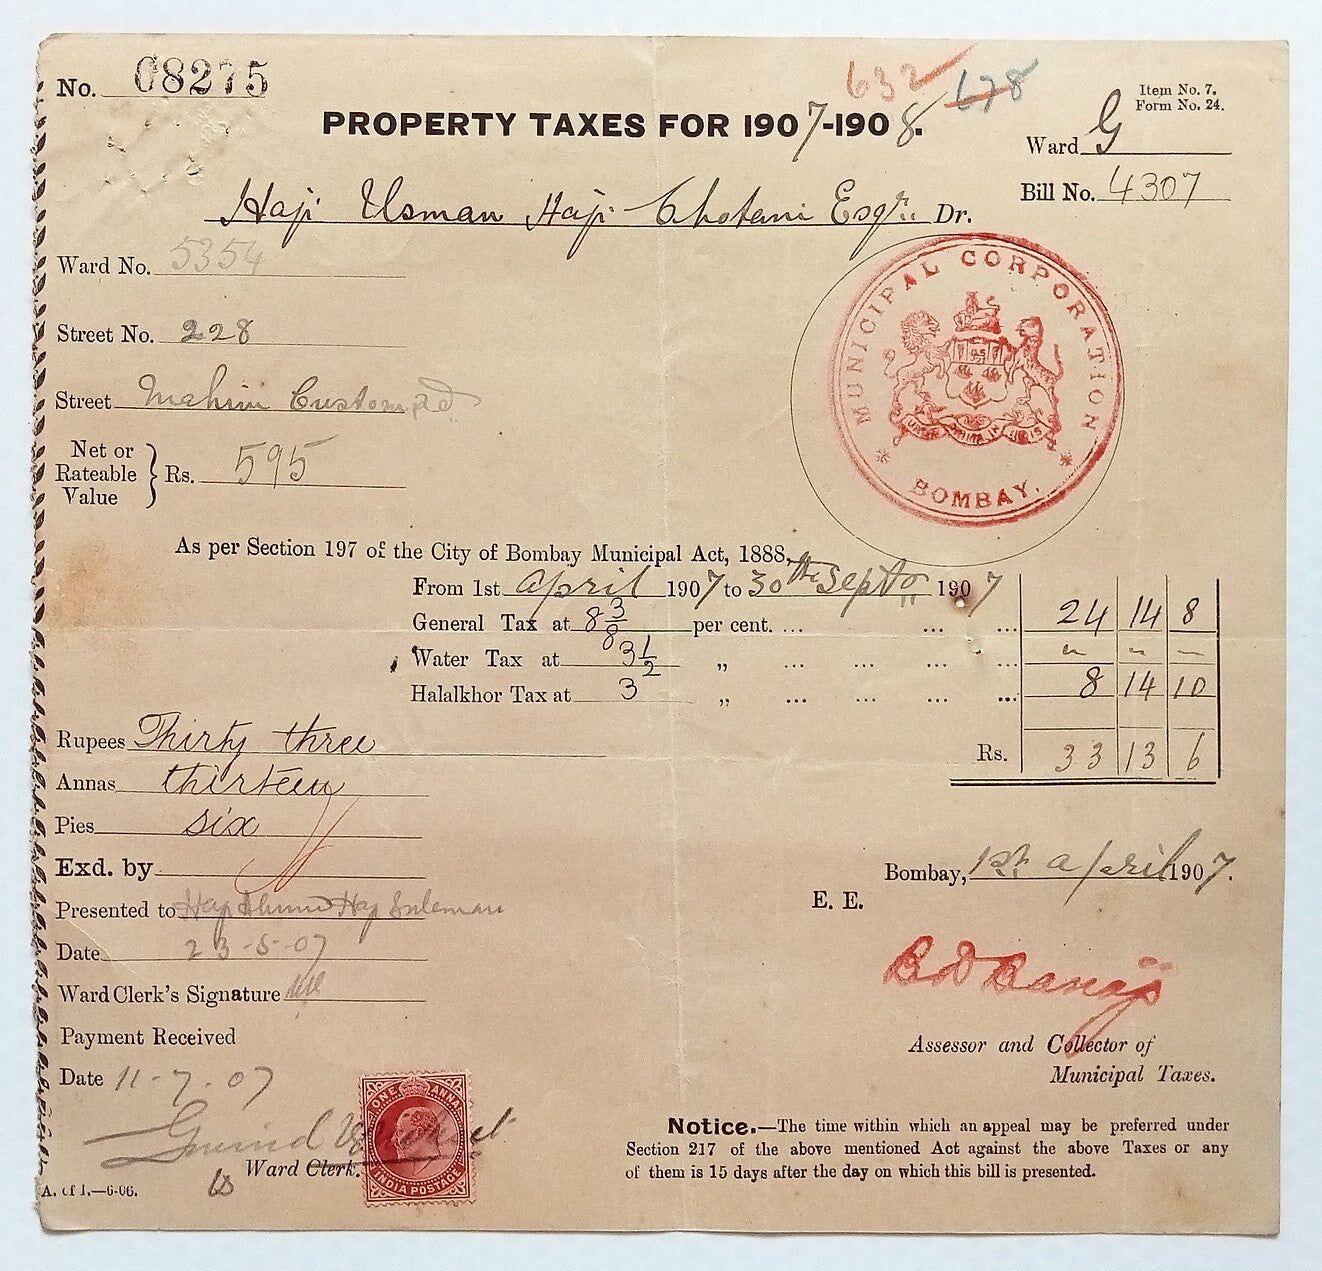 No. 08275
632 678
Item No. 7.
Form No. 24.
PROPERTY TAXES FOR 1907-1908.
Ward G
Bill No. 4307
Haji Usman Haji Chotani Esqr. Dr.
Ward No. 5354
MUNICIPAL CORPORATION
BOMBAY.
URBS PRIMA IN INDIS
Street No. 228
Street Mahim Custom Rd
Net or
Rateable Value } Rs. 595
As per Section 197 of the City of Bombay Municipal Act, 1888,
From 1st April 1907 to 30th Septr 1907
General Tax at 8 3/8 per cent. ... ... ... 24 14 8
Water Tax at 3 1/2 „ ... ... ... ... " " —
Halalkhor Tax at 3 „ ... ... ... ... 8 14 10
Rs. 33 13 6
Rupees Thirty three
Annas thirteen
Pies six
Exd. by
Bombay, 1st April 1907.
E. E.
Presented to Haji Haji Suleman
Date 23-5-07
Ward Clerk's Signature
Assessor and Collector of
Municipal Taxes.
Payment Received
Date 11-7-07
Govind
Ward Clerk.
ONE ANNA
INDIA POSTAGE
Notice.—The time within which an appeal may be preferred under
Section 217 of the above mentioned Act against the above Taxes or any
of them is 15 days after the day on which this bill is presented.
A. of I.—6-06.